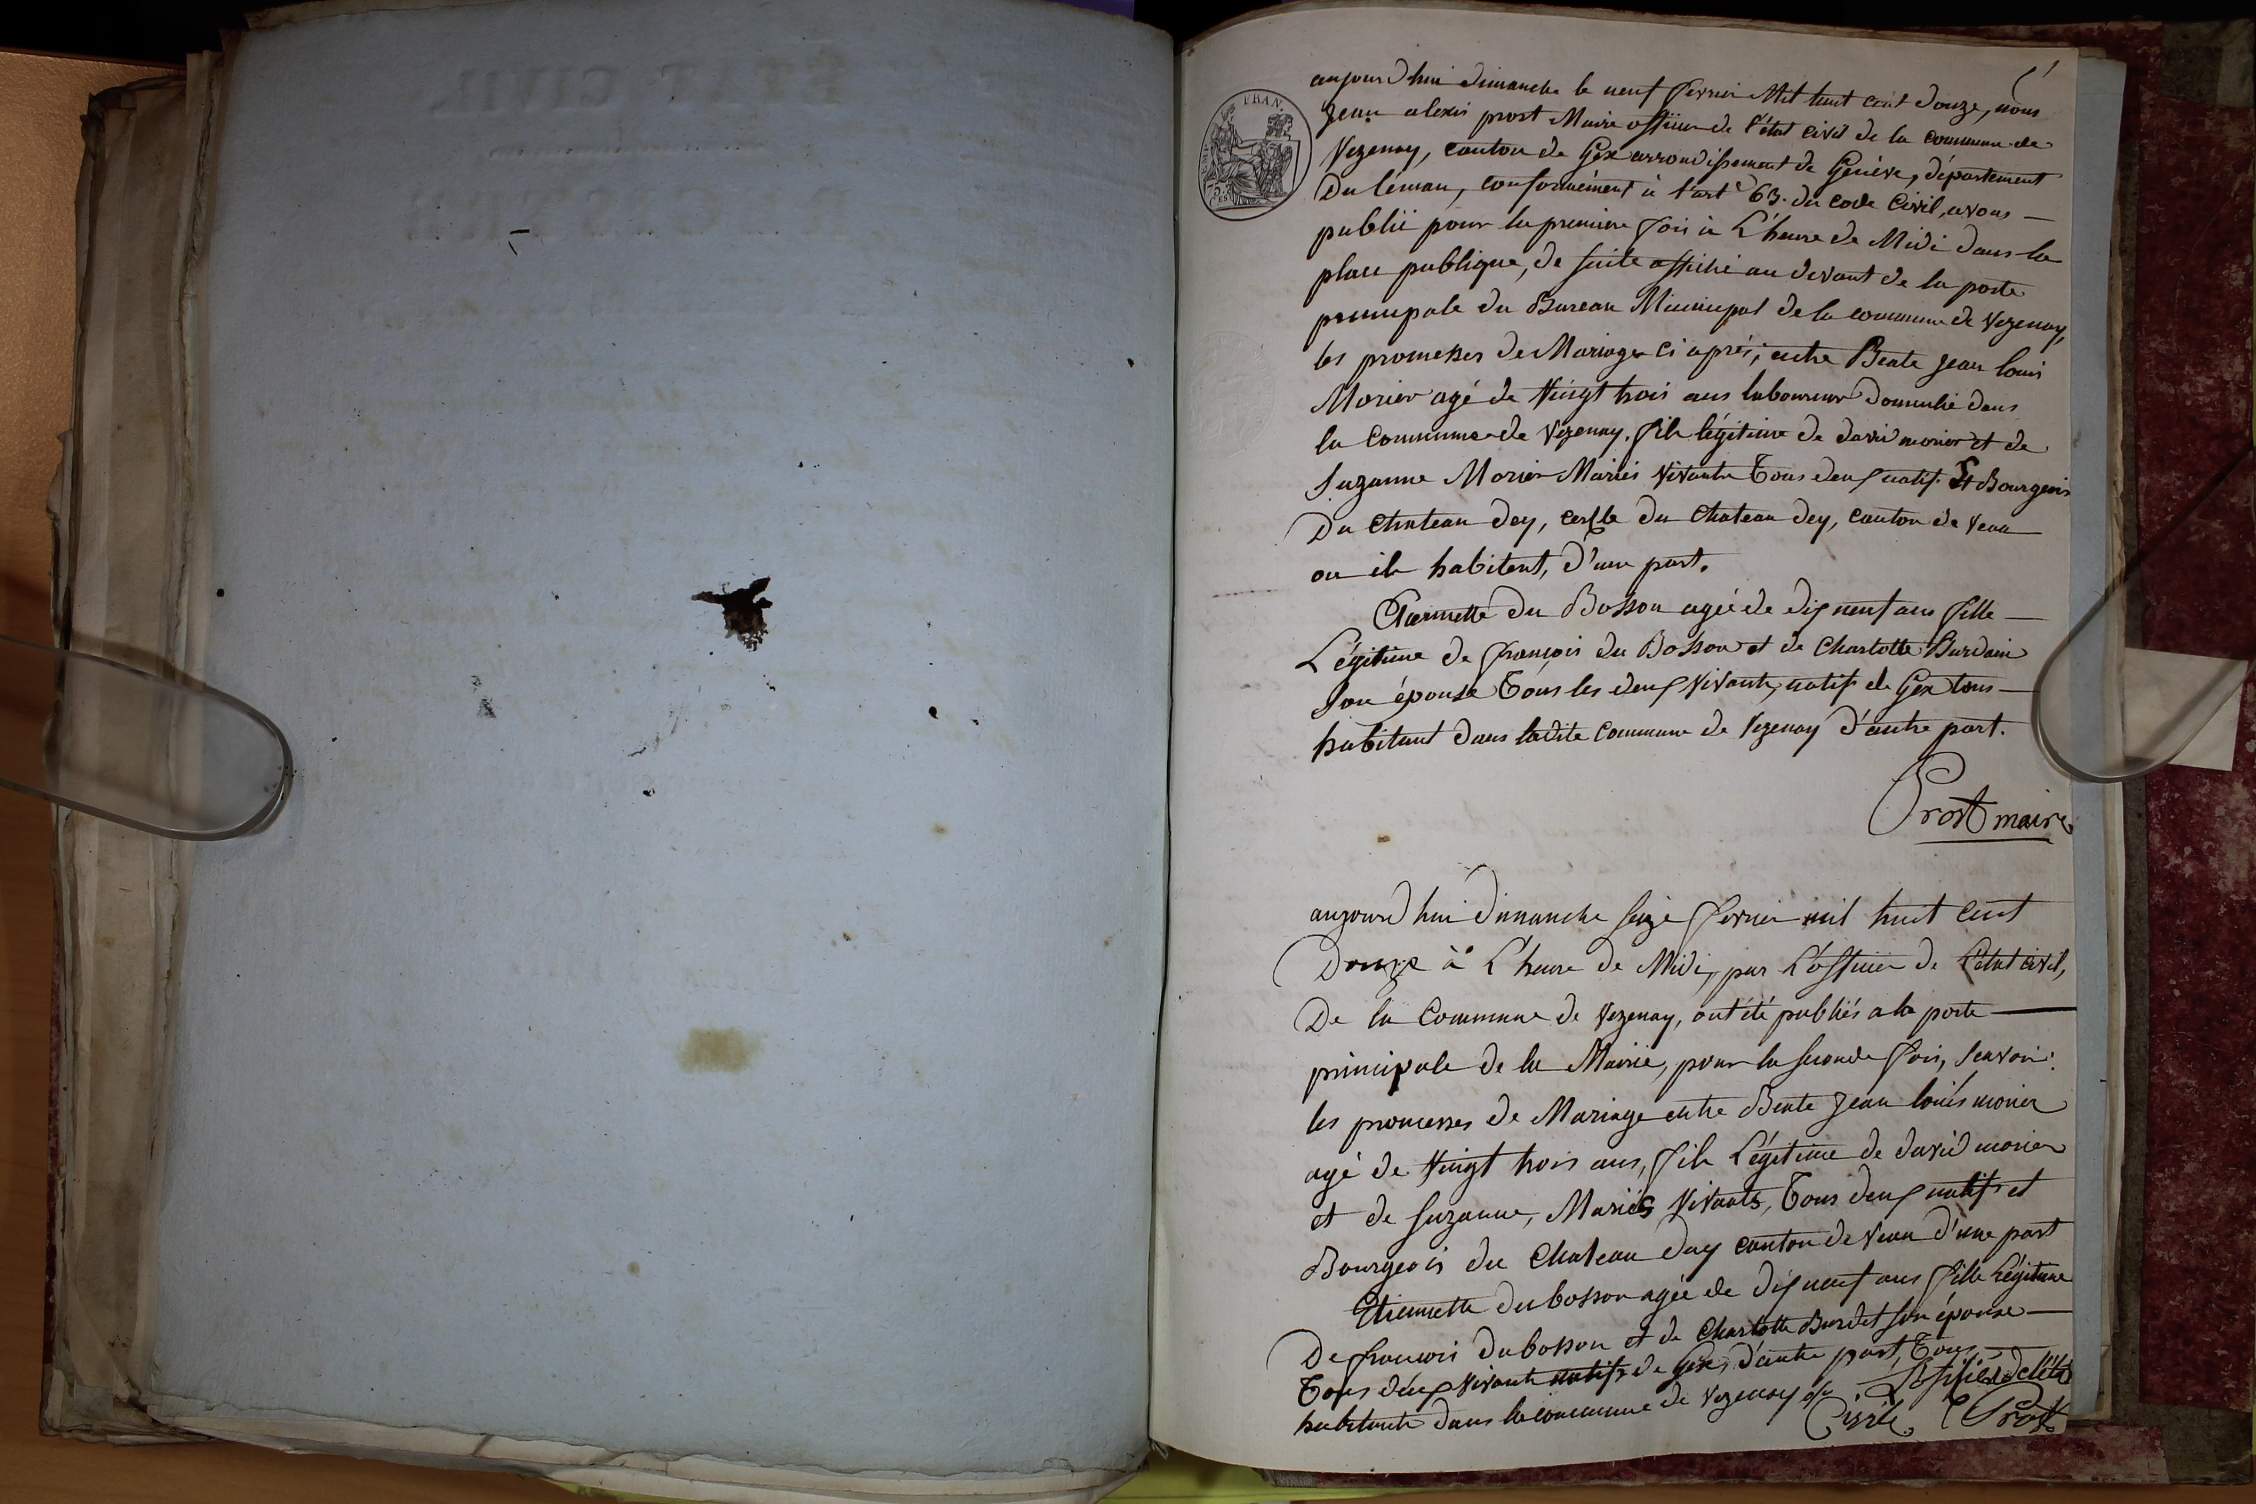 aujourdhui dimanche le neuf fevrier Mil huit cent douze, nous
Jean alexis prost Maire officier de l'état civil de la commune de
Vezenay, canton de Gex arrondissement de Genève, département
Du léman, conformément à l'art 63. du code Civil, avons —
publié pour la premiere fois à L'heure de Midi dans la
place publique, de suite affiché au devant de la porte
principale du Bureau Municipal de la commune de Vezenay,
les promesses de Mariage ci après; entre Beate Jean louis
Morier agé de Vingt trois ans laboureur Domicilié dans
la Commune de Vezenay, fils légitime de david morier et de
Suzanne Morier Mariés Vivants Tous deux natifs Et Bourgeois
Du Chateau dey, cercle du Chateau dey, canton de Veau
ou ils habitent, d'une part.
Etiennette Du Bosson agée de dix neuf ans fille —
Légitime de françois du Bosson et de Charlotte Burdain
son épouse Tous les deux Vivants, natifs de Gex tous —
habitant dans ladite Commune de Vezenay d'autre part.
Prost maire
aujourdhui dimanche seize fevrier mil huit cent
Douze à L'heure de Midi, par L'officier de l'état civil,
De la Commune de Vezenay, ont été publiés a la porte —
principale de la Mairie, pour la seconde fois, scavoir:
les promesses de Mariage entre Beate Jean louis morier
agé de Vingt trois ans, fils Légitime de david morier
et de Suzanne, Mariés Vivants, Tous deux natifs et
Bourgeois du Chateau day canton de Veau d'une part
Etiennette dubosson agée de dix neuf ans fille Légitime
De francois dubosson et de Charlotte Burdet son épouse —
Tous deux vivants natifs de Gex, d'autre part, Tous
habitants dans la commune de Vezenay L'officier de l'état
Civile. Prost
FRAN.